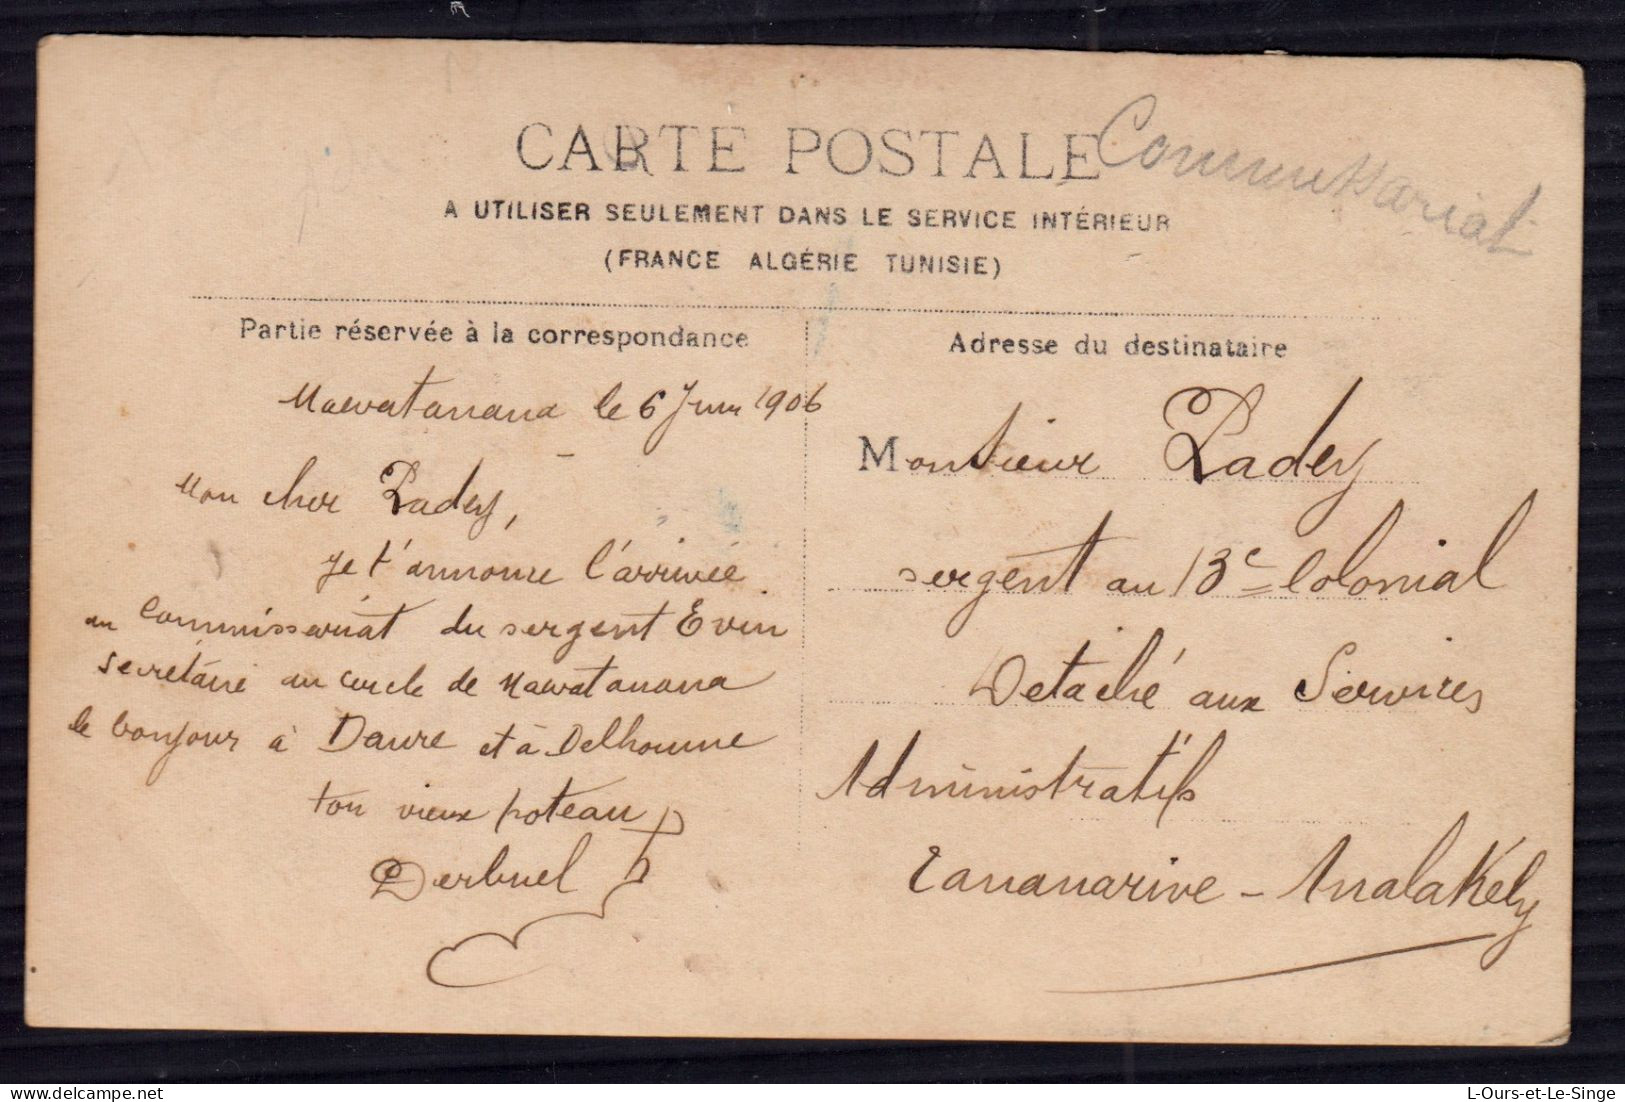 CARTE POSTALE
Commissariat
A UTILISER SEULEMENT DANS LE SERVICE INTÉRIEUR
(FRANCE ALGÉRIE TUNISIE)
Partie réservée à la correspondance
Maevatanana le 6 Juin 1906
Mon cher Ladey,
je t'annonce l'arrivée
au commissariat du sergent Evin
secrétaire au cercle de Maevatanana
le bonjour à Daure et à Delhoume
ton vieux poteau
Derbuel
Adresse du destinataire
Monsieur Ladey
sergent au 13e Colonial
Détaché aux Services
Administratifs
Tananarive - Analakély
L-Ours-et-Le-Singe